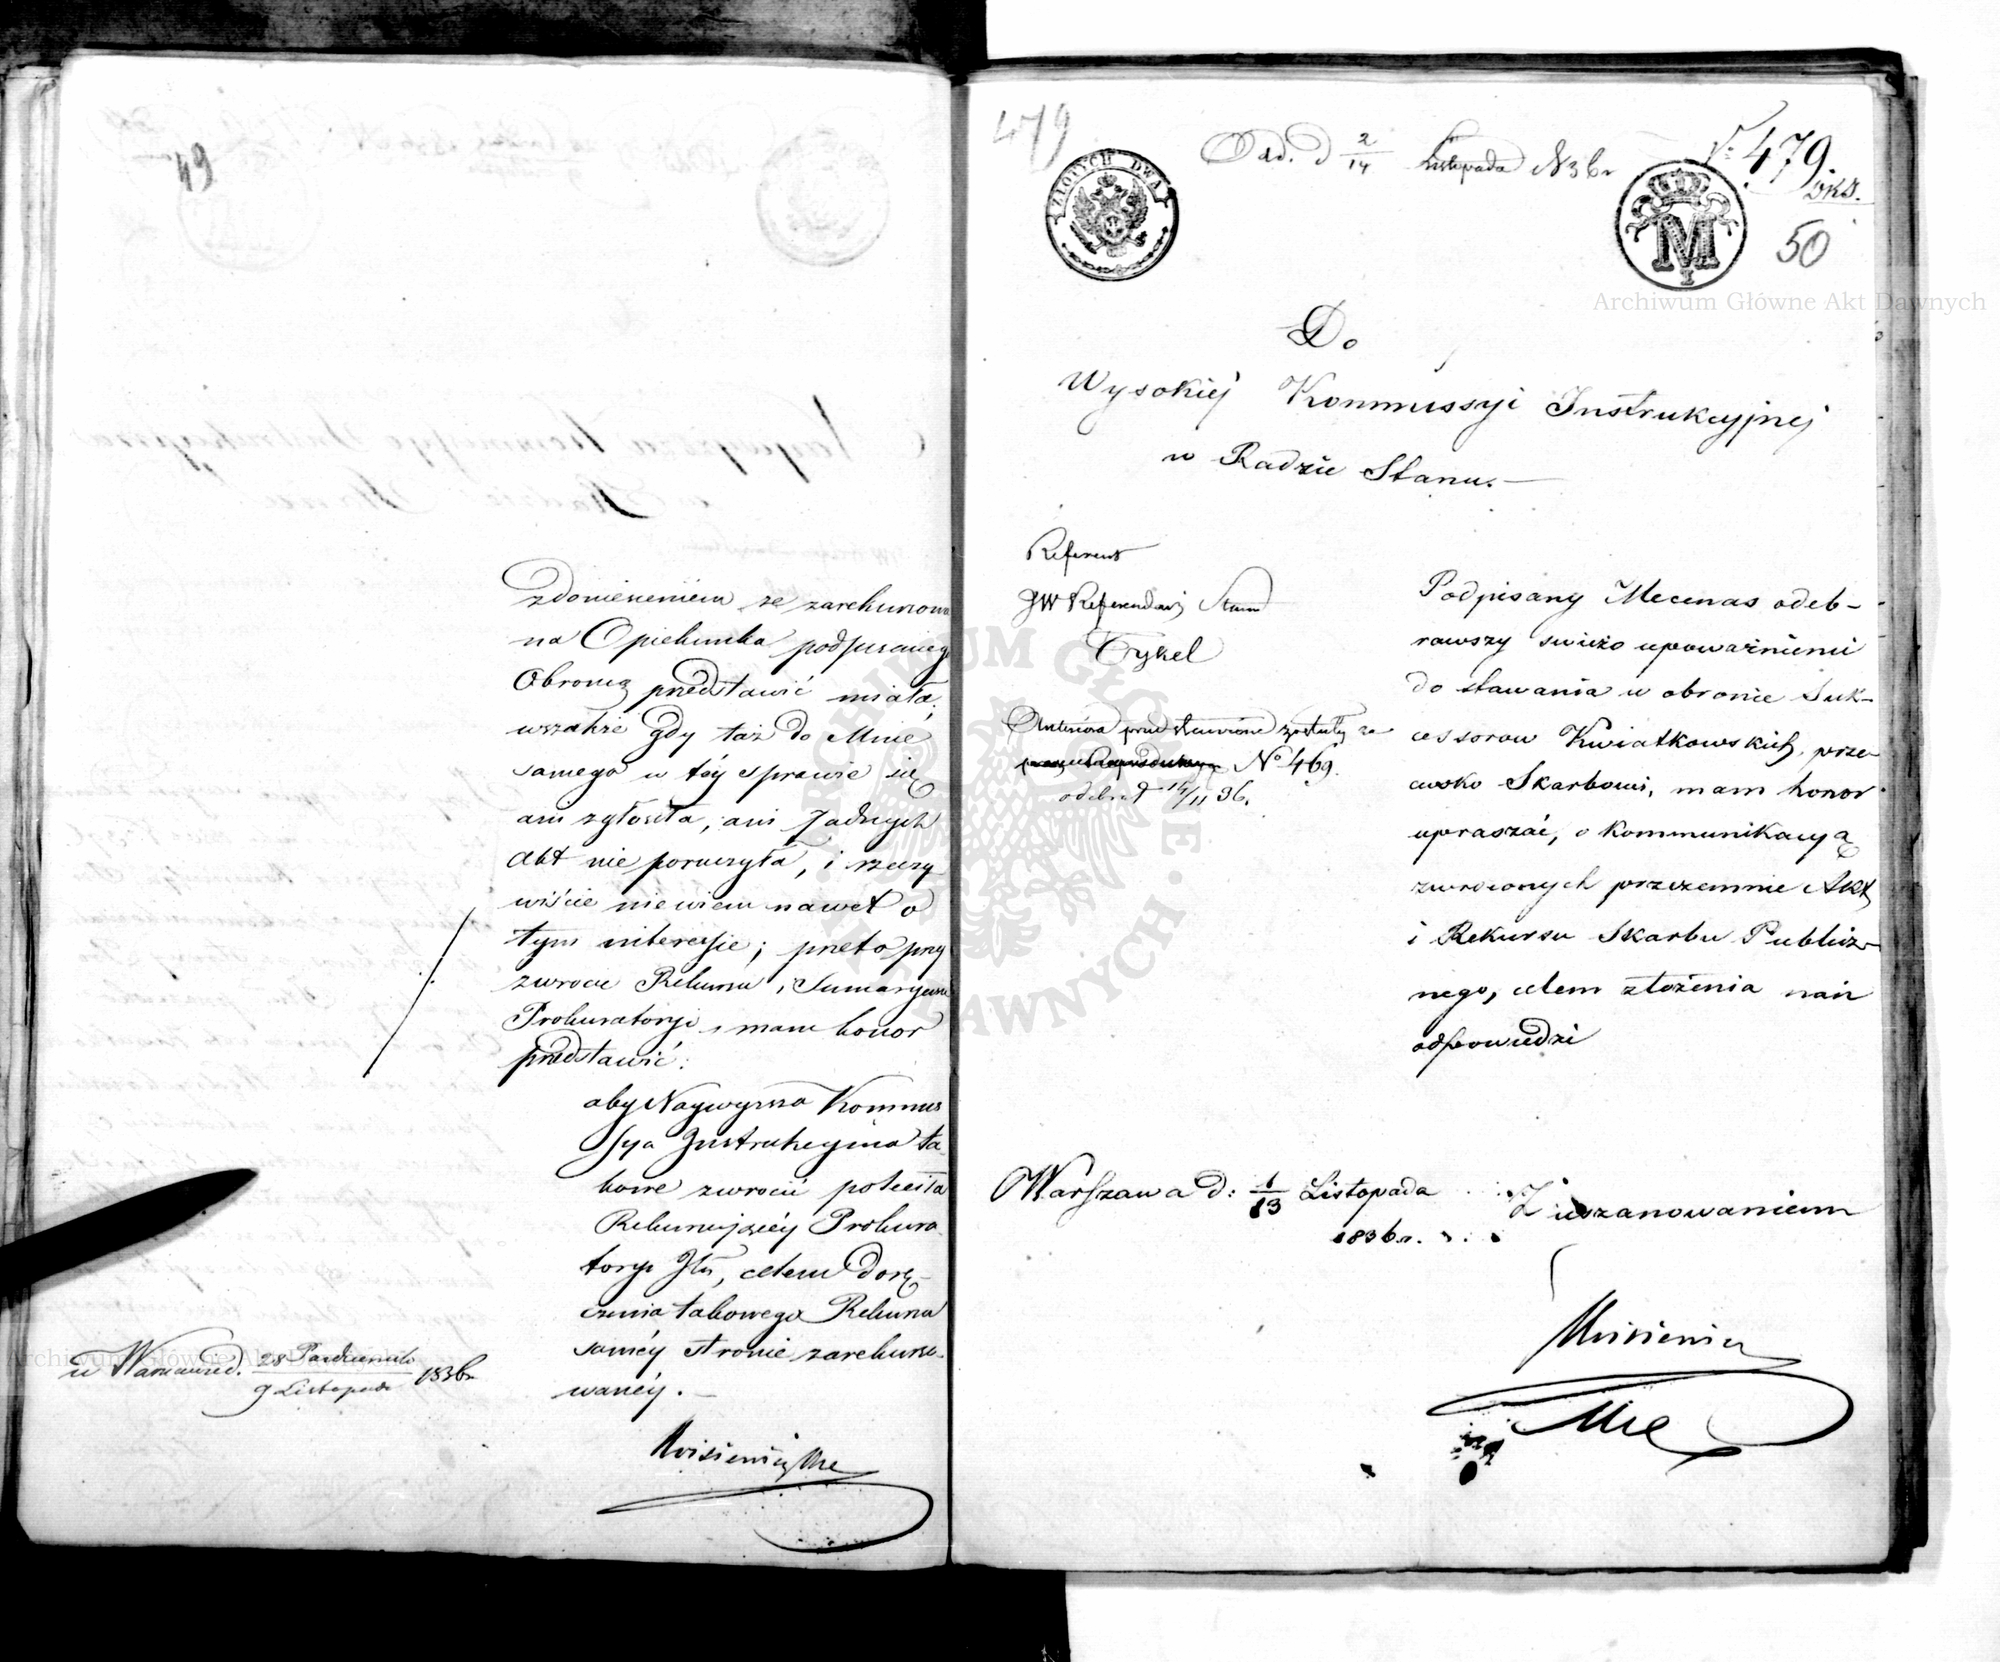 49
z doniesieniem ze zarekurowa
na Opiekunka podpisanego
Obrońcą przedstawić miała,
wszakże gdy taż do Mnie
samego w téy sprawie się
ani zgłosiła, ani żadnych
akt nie poruczyła, i rzeczy
wiście nie wiem nawet o
tym interessie; przeto przy
zwrocie Rekursu, Sumaryusza
Prokuratoryi, mam honor
przedstawić:
aby Naywyższa Kommis
sya Instrukcyina ta-
kowe zwrocić poleciła
Rekurującéy Prokura-
toryi Jłn, celem dorę-
czenia takowego Rekursu
saméy stronie zarekurso-
wanéy.
w Warszawie d. 28 Października
9 Listopada 1836 r.
479
ZŁOTYCH DWA
Odd. d 2/14 Listopada 1836 r
N: 479
50
M
I
Do
Wysokiej Kommissyi Instrukcyjnej
w Radzie Stanu.
Referent
JW Referendarz Stanu
Tykel
Anteriora przedstawione zostały za
No 469.
odebrał 14/11 36.
Podpisany Mecenas odeb-
rawszy swieżo upoważnienie
do stawania w obronie Suk-
cessorow Kwiatkowskich, prze-
ciwko Skarbowi, mam honor
upraszać, o kommunikacyą
zwroconych przezemnie Akt
i Rekursu Skarbu Publicz-
nego, celem złożenia nań
odpowiedzi
Warszawa d: 1/13 Listopada
1836 r.
Z uszanowaniem
Archiwum Główne Akt Dawnych
ARCHIWUM GŁÓWNE AKT DAWNYCH
Archiwum Główne Akt Dawnych